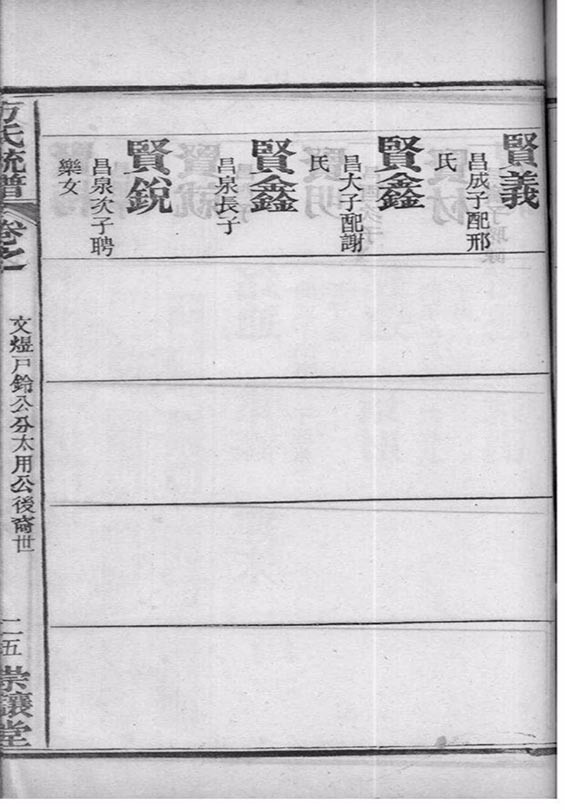 賢義
昌成子配邢
氏
賢鑫
昌大子配謝
氏
賢鑫
昌泉長子
賢銳
昌泉次子聘
樂女
方氏統譜
卷之一
文煜戸鈴公分太用公後裔世
二五
崇讓堂